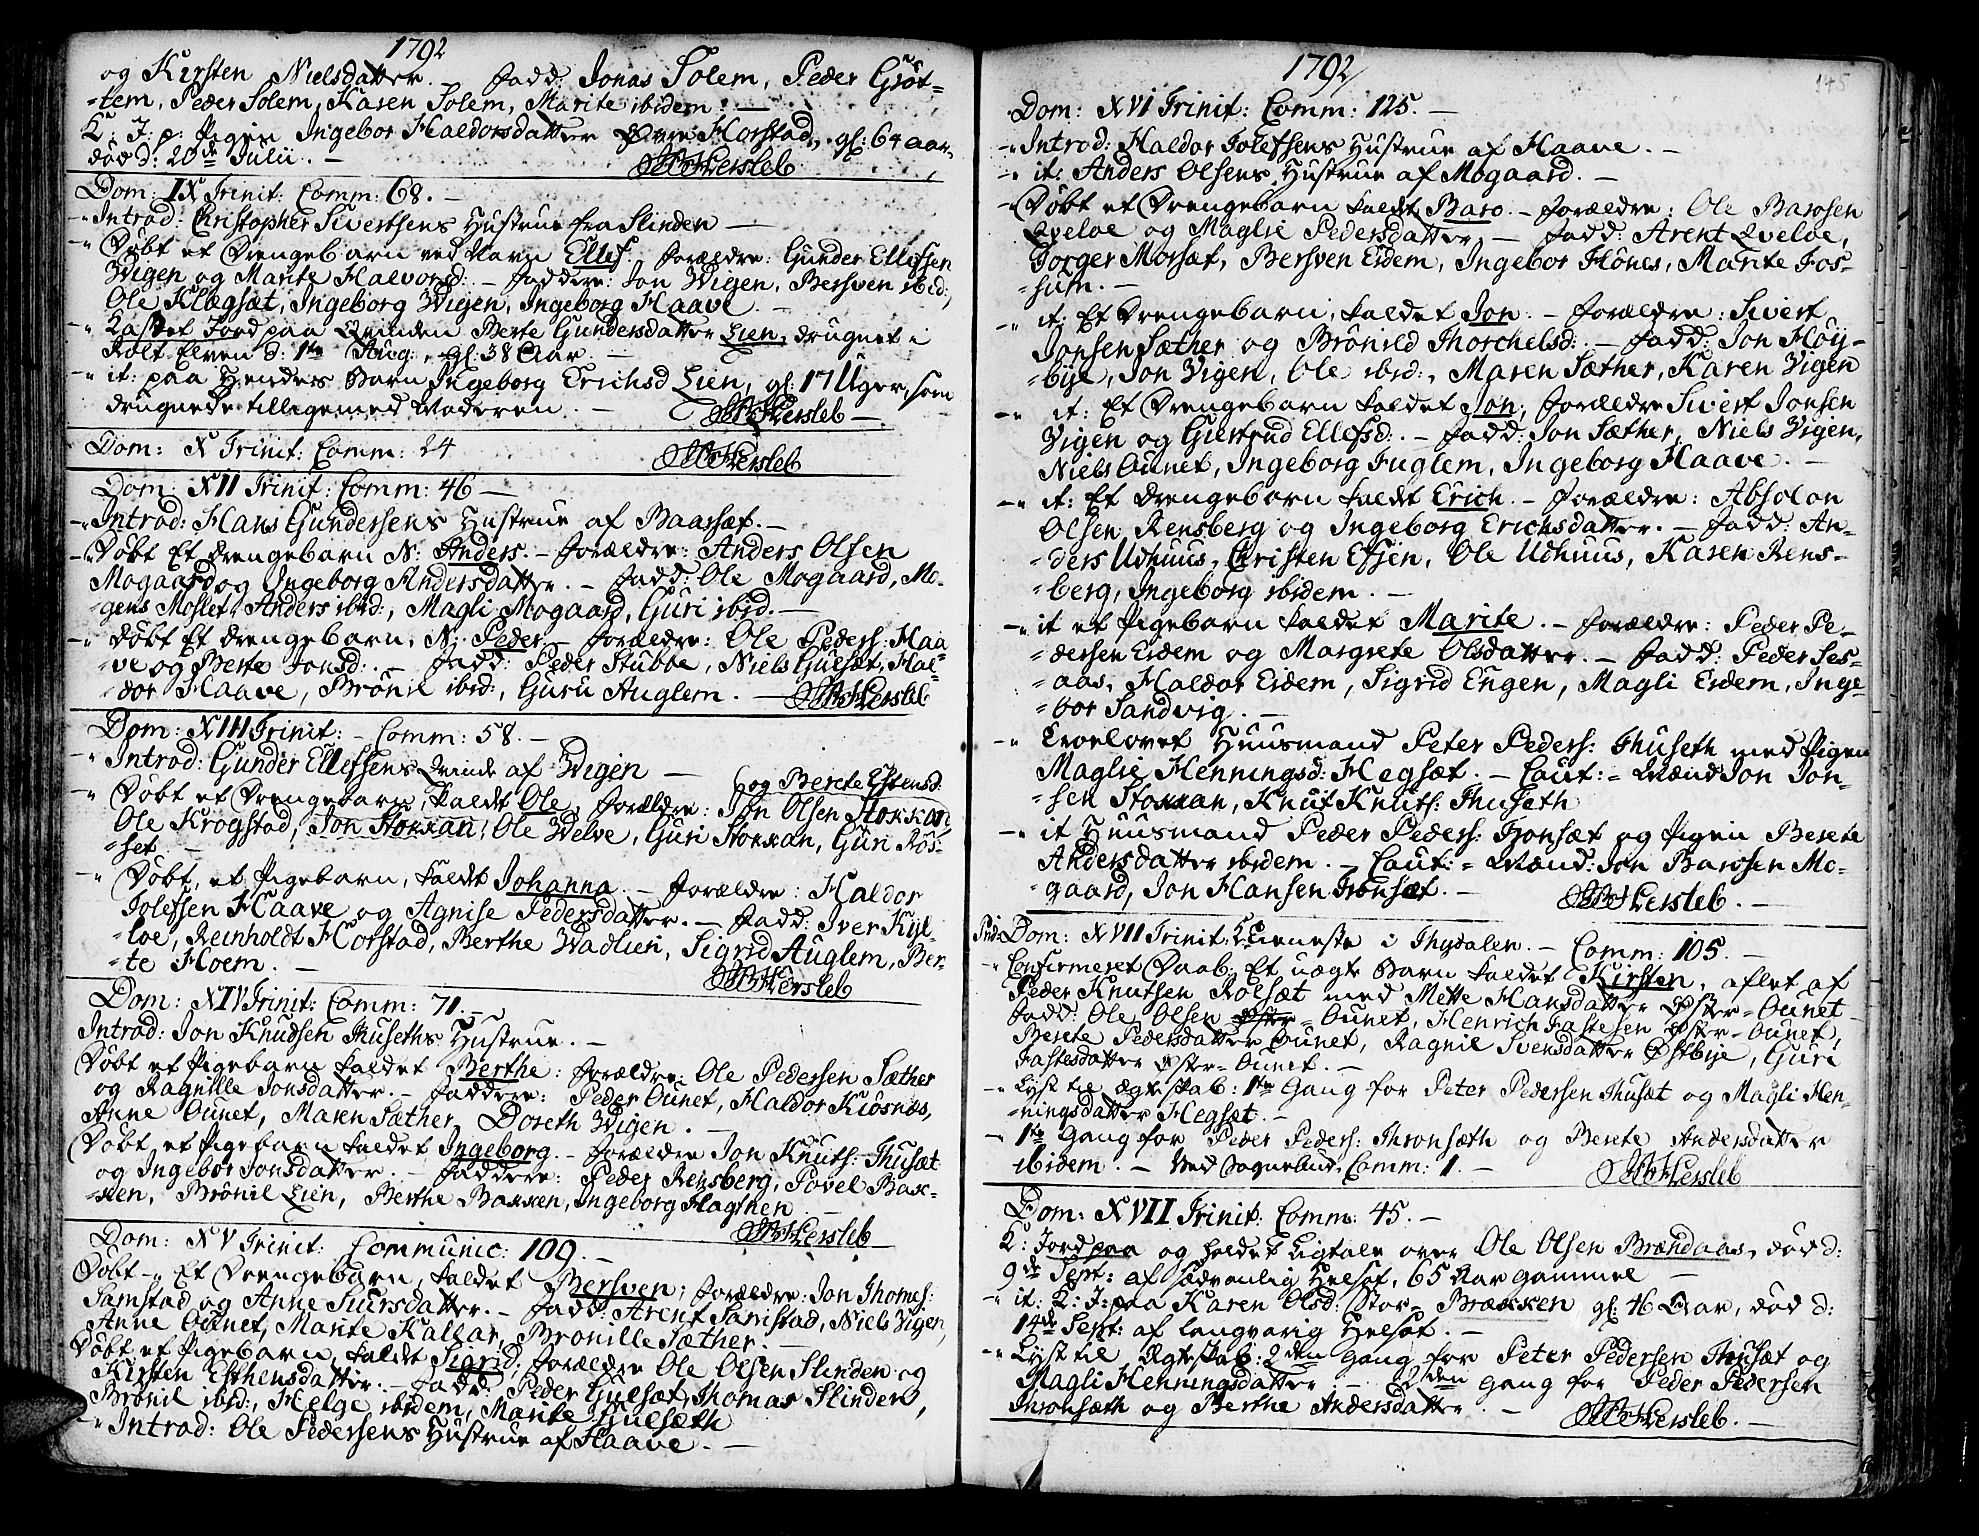 1792
og Kirsten Nielsdatter. — Fadd: Jonas Solem, Peder Grøt-
-tem, Peder Solem, Karen Solem, Marite ibidem. —
K: J: p: Pigen Ingebor Haldorsdatter Øvre Horstad, gl: 64 aar,
død d: 20de Julii. —
Hersleb
Dom: IX Trinit: Comm: 68. —
-" Introd: Christopher Sivertsens Hustrue fra Slinden —
-" Døbt et Drengebarn ved Navn Ellef. Forældre: Gunder Ellefsen
Vigen og Marite Halvorsd: — Faddere: Jon Vigen, Bersven ibid:,
Ole Klegsæt, Ingeborg Vigen, Ingeborg Haave —
-" Kastet Jord paa Qvinden Berte Gundersdatter Lien, drugnet i
Rolt Elven d: 1ste Aug:, gl: 38 Aar. —
-" it: paa Hendes Barn Ingeborg Erichsd Lien, gl: 17 Uger, som
drugnede tilligemed Moderen. — Hersleb —
Dom: X Trinit: Comm: 24 Hersleb
Dom: XII Trinit: Comm: 46 —
-" Introd: Hans Gundersens Hustrue af Baarsæt. —
-" Døbt Et Drengebarn N: Anders. — Forældre: Anders Olsen
Mogaard og Ingeborg Andersdatter. — Fadd: Ole Mogaard, Mo-
-gens Moslet, Anders ibid:, Magli Mogaard, Guri ibid. —
-" Døbt Et Drengebarn, N: Peder — Forældre: Ole Peders: Haa
-ve og Berte Jonsd: — Fadd: Peder Stubbe, Niels Guldsæt, Hal-
-dor Haave, Brønil ibid:, Guru Auglem. — Hersleb
Dom: XIII Trinit: — Comm: 58. —
-" Introd: Gunder Ellefsens Qvinde af Vigen —
(og Berete Estensd:
-" Døbt et Drengebarn, kaldet Ole, Forældre: Jon Olsen Stokkan
Ole Krogstad, Jon Stokkan, Ole Velve, Guri Stokkan, Guri Røs-
-set —
-" Døbt, et Pigebarn, kaldet Johanna. — Forældre: Haldor
Jolefsen Haave og Agnise Pedersdatter. — Fadd: Iver Kyl-
-loe, Reinholdt Horstad, Berthe Vadlien, Sigrid Auglem, Ber-
-te Hoem. —
Hersleb
Dom: XIV Trinit: Comm: 71. —
Introd: Jon Knudsen Thuseths Hustrue. —
Døbt et Pigebarn kaldet Berthe: Forældre: Ole Pedersen Sæther
og Ragnille Jonsdatter. — Faddere: Peder Ounet, Haldor Kiøsnøs,
Anne Ounet, Maren Sæther, Doreth Vigen. —
Døbt et Pigebarn kaldet Ingeborg. — Forældre Jon Knuts: Thusæt
og Ingebor Jonsdatter. — Faddere: Peder Rensberg, Povel Bak-
-ken, Brønil Lien, Berthe Bakken, Ingeborg Hagthen —
Hersleb
Dom: XV Trinit: Communic: 109. —
Døbt -" Et Drengebarn, kaldet Bersven; Forældre: Jon Thomes:
Samstad og Anne Siursdatter. — Fadd: Arent Samstad, Niels Vigen,
Anne Ounet, Marite Kallar, Bronille Sæther. —
Døbt et Pigebarn, kaldt Sigrid; Forældre Ole Olsen Slinden og
Kirsten Esthensdatter. — Fadd: Peder Guldsæt, Thomas Slinden,
Brønil ibid:, Helge ibidem, Marite Guldsæth
-" Introd: Ole Pedersens Hustrue af Haave. —
1792
145
Dom: XVI Trinit: Comm: 125. —
-" Introd: Haldor Jolefsens Hustrue af Haave. —
-" it: Anders Olsens Hustrue af Mogaard. —
-" Døbt et Drengebarn kaldet Baro. — Forældre: Ole Barosen
Qveloe og Maglie Pedersdatter — Fadd: Arent Qveloe,
Torger Morsæt, Bersven Eidem, Ingebor Hønes, Marite Fos-
-sum. —
-" it: Et Drengebarn, kaldet Jon. — Forældre: Sivert
Jonsen Sæther og Brønild Thorchelsd: — Fadd: Jon Høy-
-bye, Jon Vigen, Ole ibid:, Maren Sæther, Karen Vigen
-" it: Et Drengebarn kaldet Jon, Forældre Sivert Jonsen
Vigen og Giertrud Ellefsd: — Fadd: Jon Sæther, Niels Vigen,
Niels Ounet, Ingeborg Fuglem, Ingeborg Haave. —
-" it: Et Drengebarn kaldt Erich. — Forældre: Absolon
Olsen Rensberg og Ingeborg Erichsdatter. — Fadd: An-
-ders Udhuus, Christen Efsen, Ole Udhuus, Karen Rens-
-berg, Ingeborg ibidem. —
-" it et Pigebarn kaldet Marite. — Forældre: Peder Pe-
-dersen Eidem og Margrete Olsdatter. — Fadd: Peder Ses-
-aas, Haldor Eidem, Sigrid Engen, Magli Eidem, Inge-
-bor Sandvig. —
-" Trolovet Huusmand Peter Peders: Thuseth med Pigen
Maglie Henningsd: Hegsæt. — Caut:= Mænd Jon Jon-
-sen Stokkan, Knut Knuts: Thuseth
-" it Huusmand Peder Peders: Tronsæt og Pigen Berete
Andersdatter ibidem. — Caut:= Mænd: Jon Barosen Mo-
gaard, Jon Hansen Tronsæt. — Hersleb. —
Dom: XVII Trinit: Tieneste i Thydalen. — Comm: 105. —
-" Confirmeret Daab: Et uægte Barn kaldet Kirsten, aflet af
Peder Knutsen Rolsæt med Mette Hansdatter Øster-Ounet
Fadd: Ole Olsen Øster-Ounet, Henrich Fastesen Øster-Ounet,
Berete Pedersdatter Ounet, Ragnil Svensdatter Østbye, Guri
Fastesdatter Øster-Ounet. —
-" Lyst til Ægteskab: 1ste Gang for Peter Pedersen Thusæt og Magli Hen-
-ningsdatter Hegsæt. —
-" 1ste Gang for Peder Peders: Thronsæth og Berete Andersdatter
ibidem. — Ved Sognebud, Comm: 1. — Hersleb
Dom: XVII Trinit: Comm: 45. —
K: Jord paa og holdet Ligtale over Ole Olsen Brændaas, død d:
9de Sept: af sædvanlig Helsot, 65 Aar gammel —
-" it: K: J: paa Karen Olsd: Stor-Brækken gl: 46 Aar, død d:
14de Sept: af langvarig Helsot. —
-" Lyst til Ægteskab: 2den Gang for Peter Pedersen Thusæt og
Magli Henningsdatter — 2den Gang for Peder Pedersen
Thronsæth og Berthe Andersdatter. — Hersleb. —